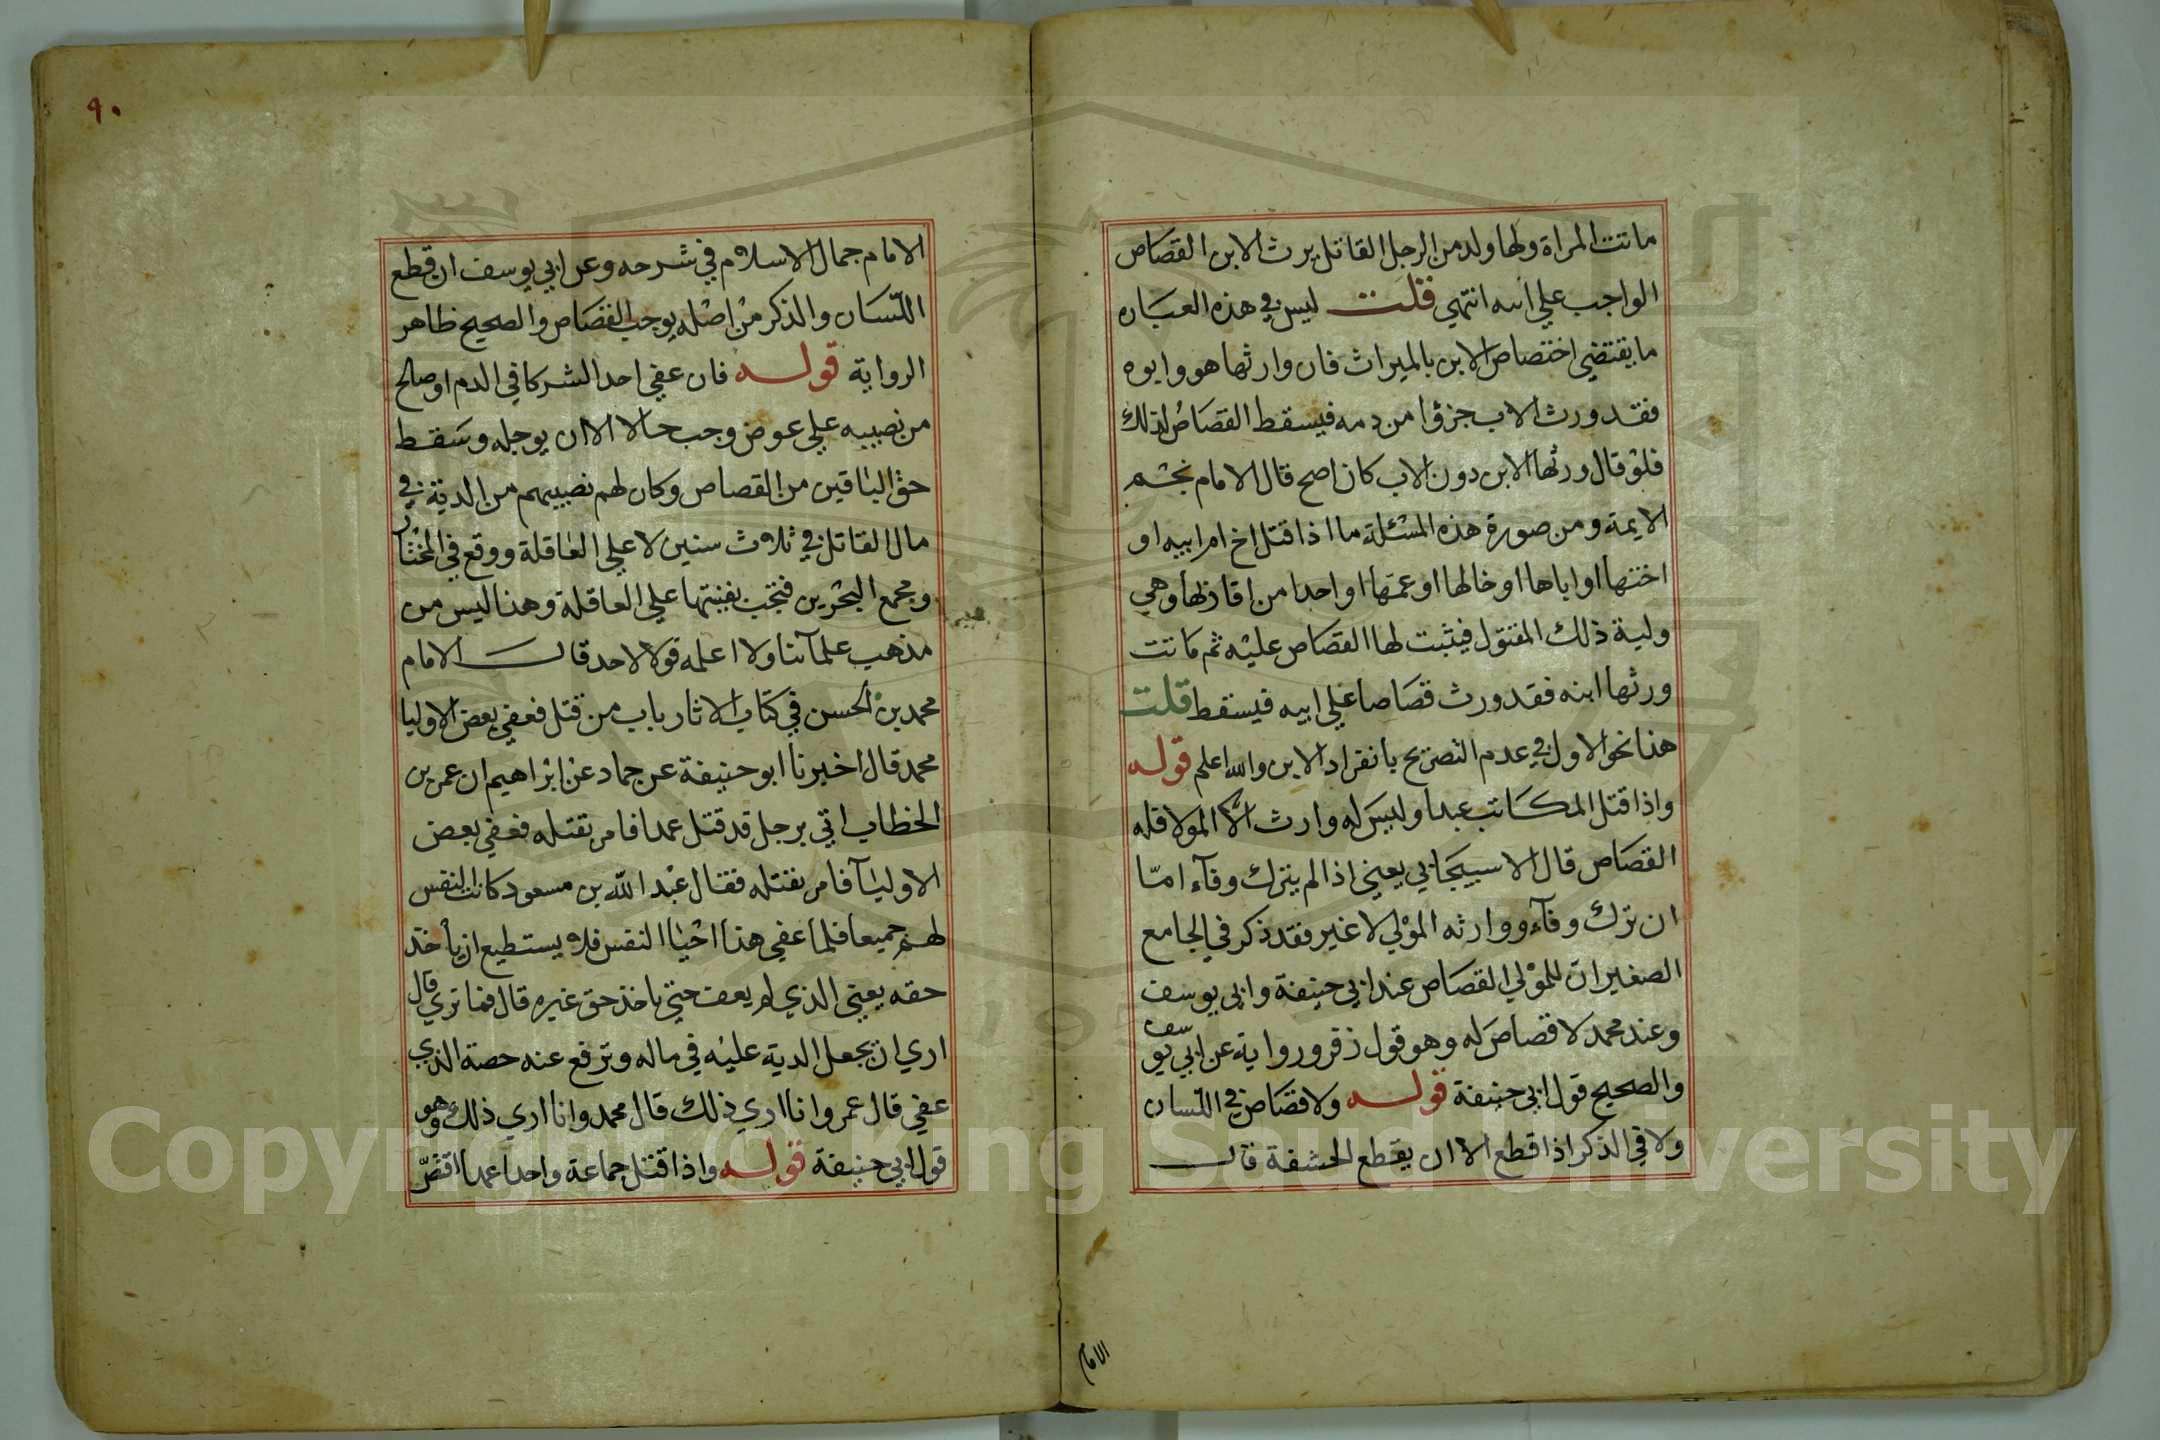 ماتت المراة ولها ولد من الرجل القاتل يرث الابن القصاص
الواجب علي ابيه انتهي قلت ليس في هذه العباره
ما يقتضي اختصاص الابن بالميراث فان وارثها هو وابوه
فقد ورث الاب جزؤا من دمه فيسقط القصاص لذلك
فلو قال ورثها الابن دون الاب كان اصح قال الامام نجم
الايمة ومن صورة هذه المسئلة ما اذا قتل اخ امرابيه او
اختها او اباها او خالها او عمها او احدا من اقاربها وهي
ولية ذلك المقتول فيثبت لها القصاص عليه ثم ماتت
ورثها ابنه فقد ورث قصاصا علي ابيه فيسقط قلت
هذا نحو الاول في عدم التصريح بانفراد الابن والله اعلم قوله
واذا قتل المكاتب عبدا وليس له وارث الا المولا فله
القصاص قال الاسبيجابي يعني اذا لم يترك وفآء امّا
ان ترك وفآء ووارثه المولي لا غير فقد ذكر في الجامع
الصغير ان للمولي القصاص عند ابي حنيفة وابي يوسف
وعند محمد لا قصاص له وهو قول زفر ورواية عن ابي يوسف
والصحيح قول ابي حنيفة قوله ولا قصاص في اللسان
ولا في الذكر اذا قطع الا ان يقطع الحشفة قال
الامام
٩٠
الامام جمال الاسلام في شرحه وعن ابي يوسف ان قطع
اللسان والذكر من اصله يوجب القصاص والصحيح ظاهر
الرواية قوله فان عفي احد الشركا في الدم او صالح
من نصيبه علي عوض وجب حالا الا ان يوجله وسقط
حق الباقين من القصاص وكان لهم نصيبهم من الدية في
مال القاتل في ثلاث سنين لا علي العاقلة ووقع في المختار
ومجمع البحرين فتجب بقيتها علي العاقلة وهذا ليس من
مذهب علمآئنا ولا اعلمه قولا لاحد قال الامام
محمد بن الحسن في كتاب الاثار باب من قتل فعفي بعض الاوليا
محمد قال اخبرنا ابو حنيفة عن حماد عن ابراهيم ان عمر بن
الخطاب اتي برجل قد قتل عمدا فامر بقتله فعفي بعض
الاوليآ فامر بقتله فقال عبد الله بن مسعود كانت النفس
لهم جميعا فلما عفي هذا احيا النفس فلا يستطيع ان ياخذ
حقه يعني الذي لم يعف حتي ياخذ حق غيره قال فما تري قال
اري ان يجعل الدية عليه في ماله وترفع عنه حصة الذي
عفي قال عمر وانا اري ذلك قال محمد وانا اري ذلك وهو
قول ابي حنيفة قوله واذا قتل جماعة واحدا عمدا اقتصّ
Copyright © King Saud University